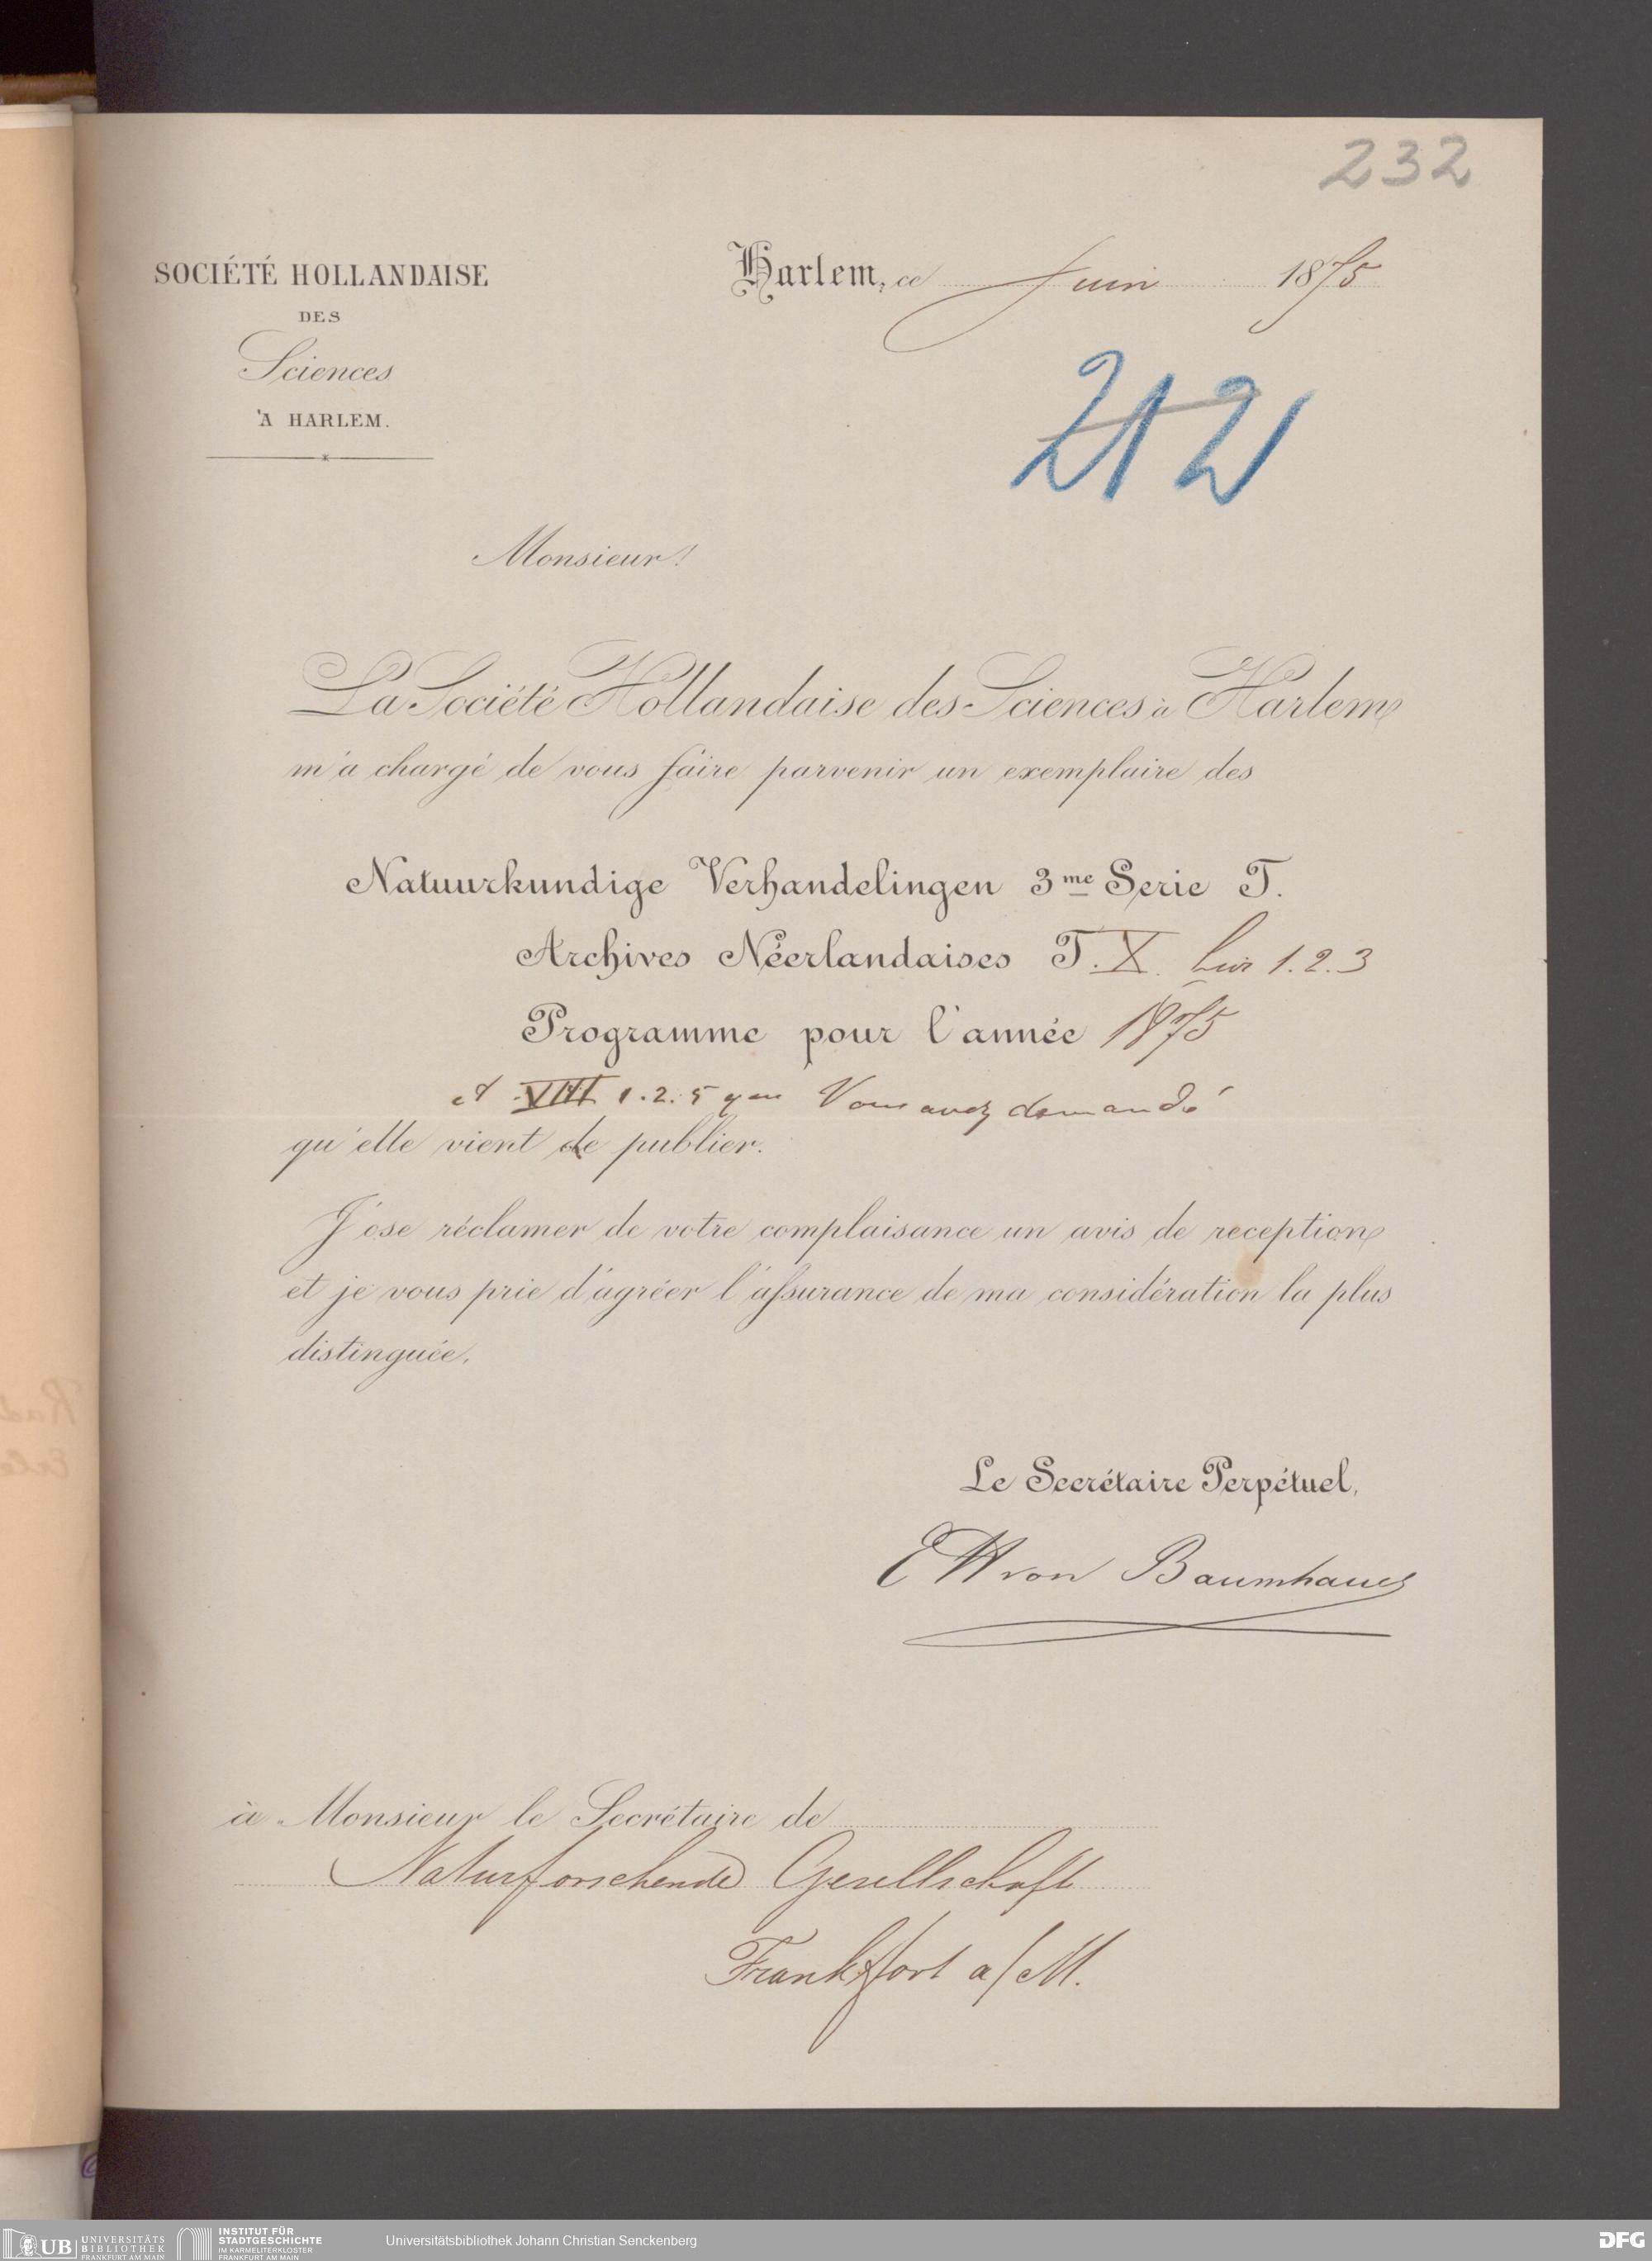 232
SOCIÉTÉ HOLLANDAISE
DES
Sciences
'A HARLEM.
Harlem, ce Juin 1875
Monsieur!
La Société Hollandaise des Sciences à Harlem
m'a chargé de vous faire parvenir un exemplaire des
Natuurkundige Verhandelingen 3me Serie T.
Archives Néerlandaises T. X. Liv 1. 2. 3
Programme pour l'année 1875
et VIII 1. 2. 5 que Vous avez demandé
qu'elle vient de publier.
J'ose réclamer de votre complaisance un avis de reception
et je vous prie d'agréer l'assurance de ma considération la plus
distinguée.
Le Secrétaire Perpétuel,
EH von Baumhauer
à Monsieur le Secrétaire de
Naturforschende Gesellschaft
Frankfort a/M.
UB UNIVERSITÄTS
BIBLIOTHEK
FRANKFURT AM MAIN
INSTITUT FÜR
STADTGESCHICHTE
IM KARMELITERKLOSTER
FRANKFURT AM MAIN
Universitätsbibliothek Johann Christian Senckenberg
DFG